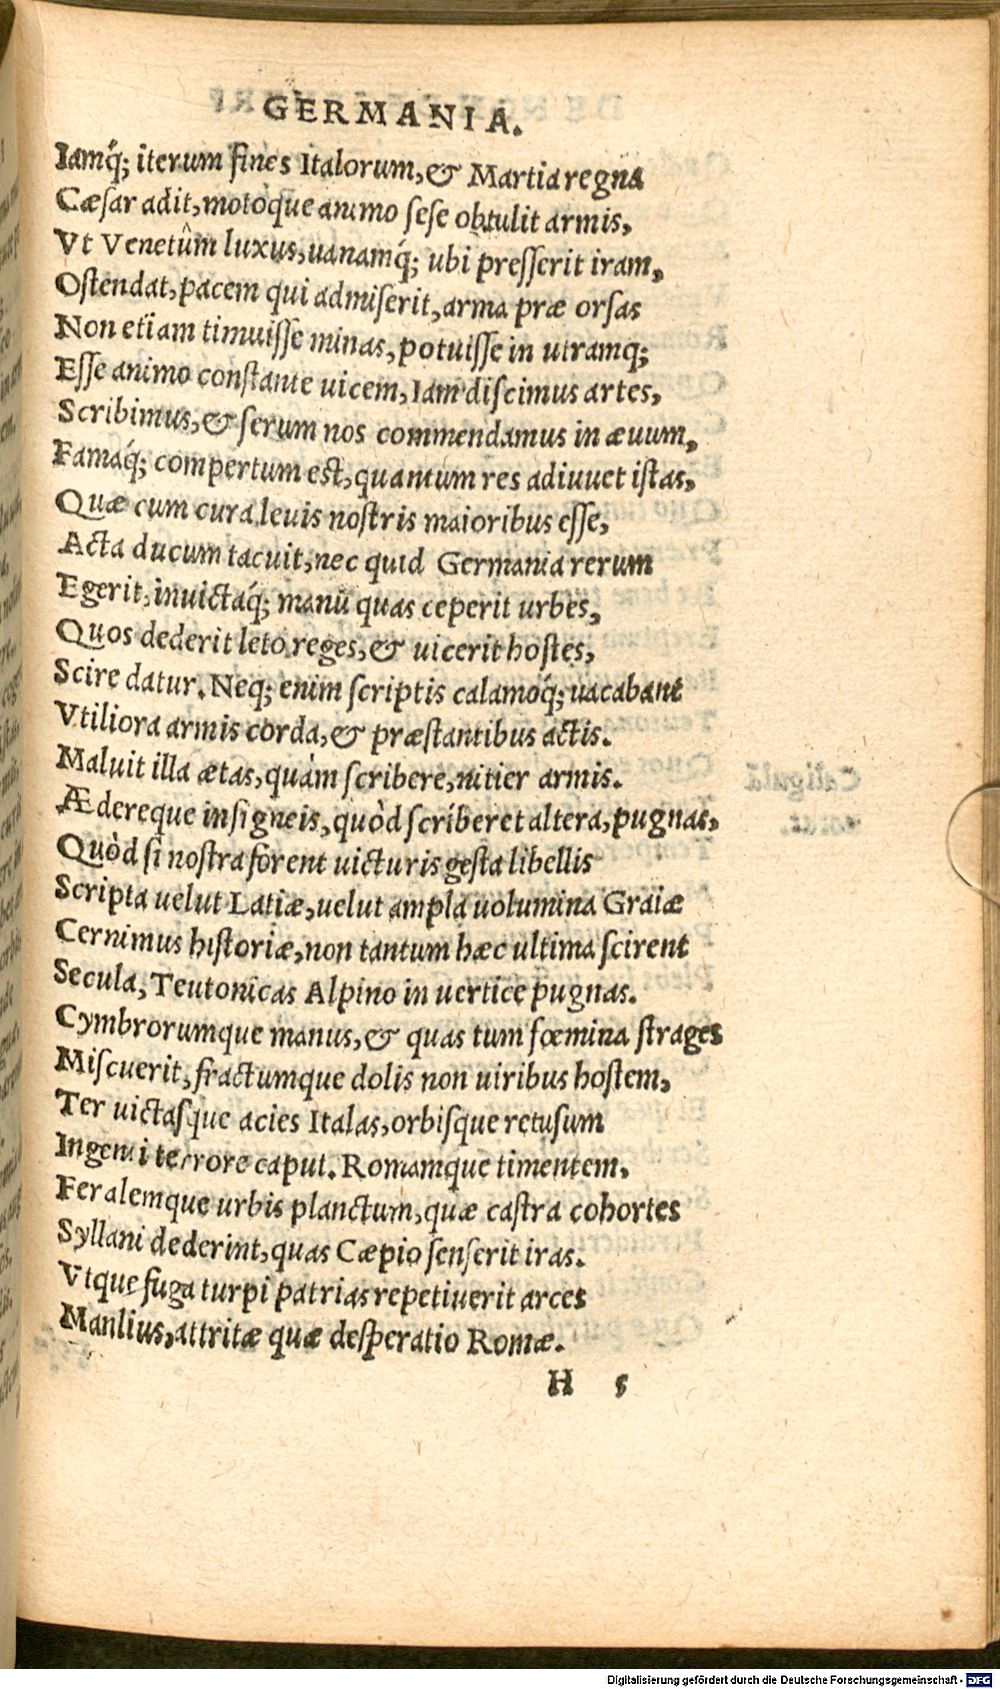 GERMANIA.
Iamq́; iterum fines Italorum, & Martia regna
Cæsar adit, motoque animo sese obtulit armis,
Vt Venetûm luxus, uanamq́; ubi presserit iram,
Ostendat, pacem qui admiserit, arma præ orsas
Non etiam timuisse minas, potuisse in utramq;
Esse animo constante uicem, Iam discimus artes,
Scribimus, & serum nos commendamus in æuum,
Famáq; compertum est, quantum res adiuuet istas,
Quæ cum cura leuis nostris maioribus esse,
Acta ducum tacuit, nec quid Germania rerum
Egerit, inuictáq; manu quas ceperit urbes,
Quos dederit leto reges, & uicerit hostes,
Scire datur. Neq; enim scriptis calamoq́; uacabant
Vtiliora armis corda, & præstantibus actis.
Maluit illa ætas, quàm scribere, nitier armis.
Ædereque insigneis, quòd scriberet altera, pugnas,
Quòd si nostra forent uicturis gesta libellis
Scripta uelut Latiæ, uelut ampla uolumina Graiæ
Cernimus historiæ, non tantum hæc ultima scirent
Secula, Teutonicas Alpino in uertice pugnas.
Cymbrorumque manus, & quas tum fœmina strages
Miscuerit, fractumque dolis non uiribus hostem,
Ter uictasque acies Italas, orbisque retusum
Ingenti terrore caput. Romamque timentem,
Feralemque urbis planctum, quæ castra cohortes
Syllani dederint, quas Cæpio senserit iras.
Vtque fuga turpi patrias repetiuerit arces
Manlius, attritæ quæ desperatio Romæ.
H 5
Digitalisierung gefördert durch die Deutsche Forschungsgemeinschaft - DFG